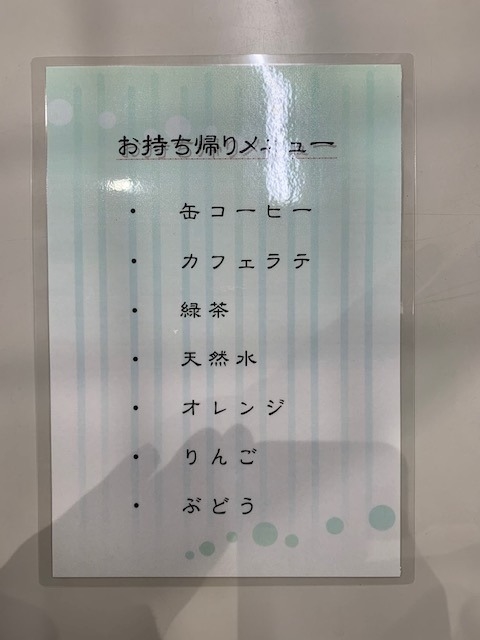 お持ち帰りメニュー
・ 缶コーヒー
・ カフェラテ
・ 緑茶
・ 天然水
・ オレンジ
・ りんご
・ ぶどう